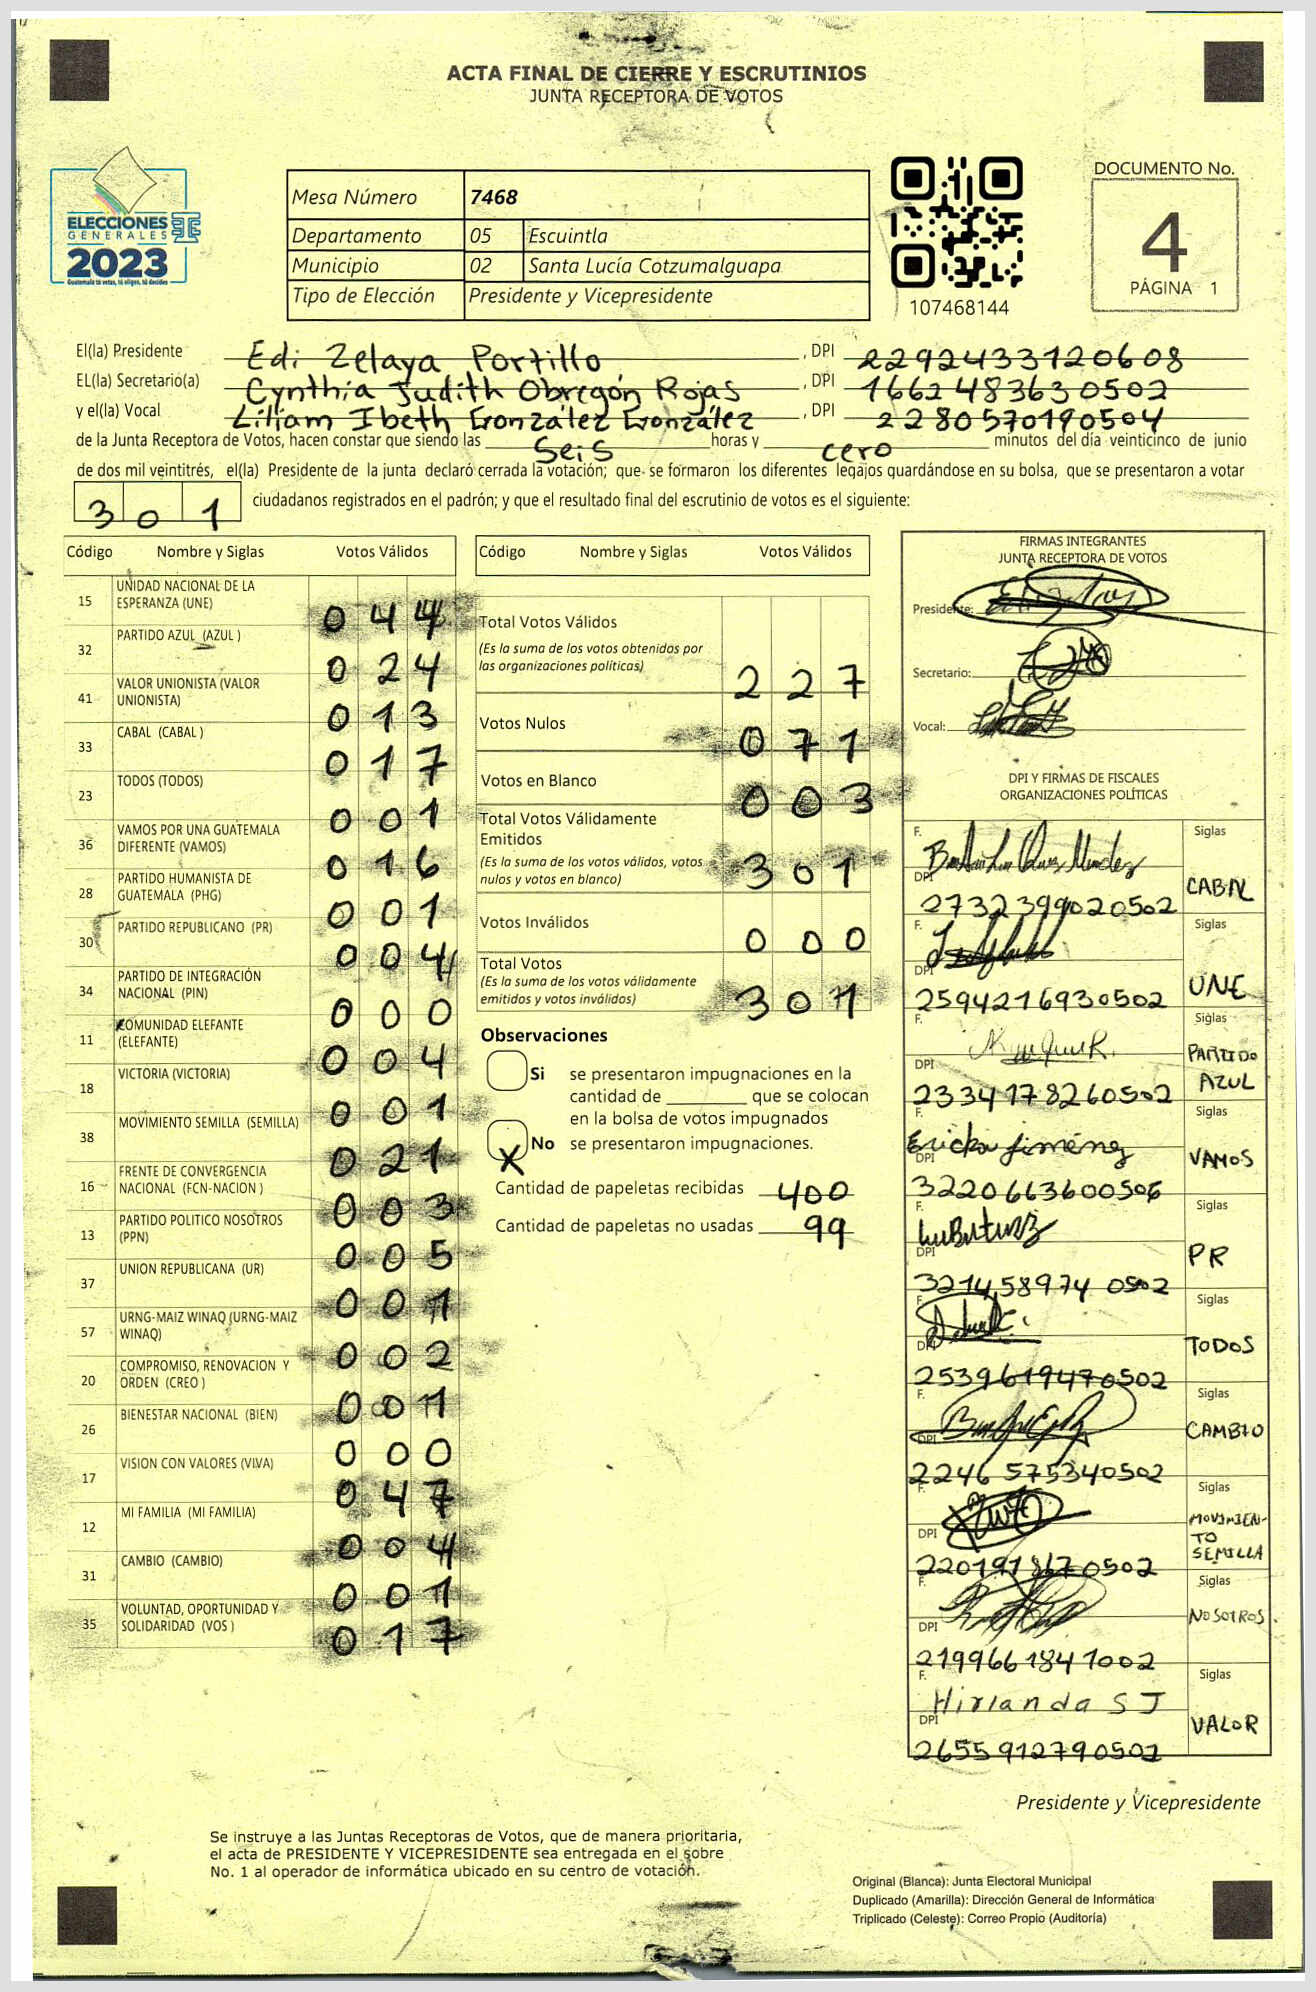 ACTA FINAL DE CIERRE Y ESCRUTINIOS
JUNTA RECEPTORA DE VOTOS
ELECCIONES
GENERALES
2023
Guatemala tú votas, tú eliges, tú decides
Mesa Número 7468
Departamento 05 Escuintla
Municipio 02 Santa Lucía Cotzumalguapa
Tipo de Elección Presidente y Vicepresidente
107468144
DOCUMENTO No.
4
PÁGINA 1
El(la) Presidente Edi Zelaya Portillo, DPI 2292433120608
EL(la) Secretario(a) Cynthia Judith Obregón Rojas, DPI 1662483630502
y el(la) Vocal Liliam Ibeth González González, DPI 2280570190504
de la Junta Receptora de Votos, hacen constar que siendo las Seis horas y cero minutos del día veinticinco de junio
de dos mil veintitrés, el(la) Presidente de la junta declaró cerrada la votación; que se formaron los diferentes legajos guardándose en su bolsa, que se presentaron a votar
301 ciudadanos registrados en el padrón; y que el resultado final del escrutinio de votos es el siguiente:
Código Nombre y Siglas Votos Válidos
15 UNIDAD NACIONAL DE LA ESPERANZA (UNE) 044
32 PARTIDO AZUL (AZUL ) 024
41 VALOR UNIONISTA (VALOR UNIONISTA) 013
33 CABAL (CABAL ) 017
23 TODOS (TODOS) 001
36 VAMOS POR UNA GUATEMALA DIFERENTE (VAMOS) 016
28 PARTIDO HUMANISTA DE GUATEMALA (PHG) 001
30 PARTIDO REPUBLICANO (PR) 004
34 PARTIDO DE INTEGRACIÓN NACIONAL (PIN) 000
11 COMUNIDAD ELEFANTE (ELEFANTE) 004
18 VICTORIA (VICTORIA) 001
38 MOVIMIENTO SEMILLA (SEMILLA) 021
16 FRENTE DE CONVERGENCIA NACIONAL (FCN-NACION ) 003
13 PARTIDO POLITICO NOSOTROS (PPN) 005
37 UNION REPUBLICANA (UR) 001
57 URNG-MAIZ WINAQ (URNG-MAIZ WINAQ) 002
20 COMPROMISO, RENOVACION Y ORDEN (CREO ) 001
26 BIENESTAR NACIONAL (BIEN) 000
17 VISION CON VALORES (VIVA) 047
12 MI FAMILIA (MI FAMILIA) 004
31 CAMBIO (CAMBIO) 001
35 VOLUNTAD, OPORTUNIDAD Y SOLIDARIDAD (VOS ) 017
Código Nombre y Siglas Votos Válidos
Total Votos Válidos 227
(Es la suma de los votos obtenidos por
las organizaciones políticas)
Votos Nulos 071
Votos en Blanco 003
Total Votos Válidamente
Emitidos 301
(Es la suma de los votos válidos, votos
nulos y votos en blanco)
Votos Inválidos 000
Total Votos 301
(Es la suma de los votos válidamente
emitidos y votos inválidos)
Observaciones
Si se presentaron impugnaciones en la
cantidad de ________ que se colocan
en la bolsa de votos impugnados
X No se presentaron impugnaciones.
Cantidad de papeletas recibidas 400
Cantidad de papeletas no usadas 99
FIRMAS INTEGRANTES
JUNTA RECEPTORA DE VOTOS
Presidente:
Secretario:
Vocal:
DPI Y FIRMAS DE FISCALES
ORGANIZACIONES POLÍTICAS
F. Siglas
DPI 2732399020502 CABAL
F. Siglas
DPI 2594216930502 UNE
F. Siglas
DPI 2334178260502 PARTIDO AZUL
F. Ericka Jiménez Siglas
DPI 3220663600506 VAMOS
F. Siglas
DPI 3214589740502 PR
F. Siglas
DPI 2539619470502 TODOS
F. Siglas
DPI 2246575340502 CAMBIO
F. Siglas
DPI 2201918670502 MOVIMIENTO SEMILLA
F. Siglas
DPI 2199661841002 NOSOTROS.
F. Hirlanda S J Siglas
DPI 2655912790502 VALOR
Presidente y Vicepresidente
Se instruye a las Juntas Receptoras de Votos, que de manera prioritaria,
el acta de PRESIDENTE Y VICEPRESIDENTE sea entregada en el sobre
No. 1 al operador de informática ubicado en su centro de votación.
Original (Blanca): Junta Electoral Municipal
Duplicado (Amarilla): Dirección General de Informática
Triplicado (Celeste): Correo Propio (Auditoría)